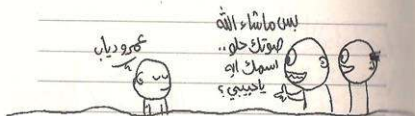 بس ماشاء الله
صوتك حلو..
اسمك ايه
ياحبيبي؟
عمرو دياب